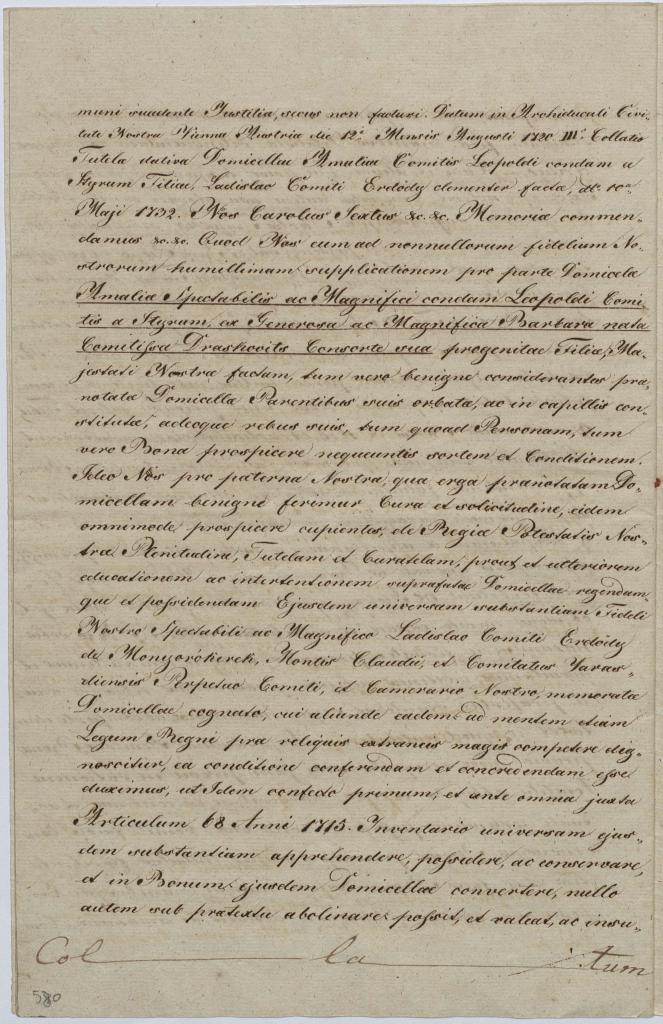 muni suadente Justitia, secus non facturi. Datum in Archiducali Civi-
tate Nostra Vienna Austria die 12a Mensis Augusti 1720. III. Collatio
Tutela dativa Domicellae Amalia Comitis Leopoldi condam a
Styrum Filiae, Ladislao Comiti Erdödy clementer facta, dto 10a
Maji 1732. Nos Carolus Sextus &c. &c. Memoriae commen-
damus &c. &c. Quod Nos cum ad nonnullorum fidelium No-
strorum humillimam supplicationem pro parte Domicela
Amalia Spectabilis ac Magnifici condam Leopoldi Comi-
tis a Styrum, ex Generosa ac Magnifica Barbara nata
Comitissa Draskovits Consorte sua progenitae Filiae, Ma-
jestati Nostrae factam, tum vero benigne considerantes prae-
notatae Domicella Parentibus suis orbatae, ac in capillis con-
stitutae, adeoque rebus suis, tum quoad Personam, tum
vero Bona prospicere nequeuntis sortem et Conditionem.
Ideo Nos pro paterna Nostra, qua erga pranotatam Do-
micellam benigne ferimur Cura et solicitudine, eidem
omnimode prospicere cupientes, de Regiae Potestatis Nos-
trae Plenitudine, Tutelam et Curatelam, prout et ulteriorem
educationem ac intertentionem suprafatae Domicellae regendam-
que et possidendam Ejusdem universam substantiam Fideli
Nostro Spectabili ac Magnifico Ladislao Comiti Erdödy
de Monyorókerék, Montis Claudii, et Comitatus Varas-
diensis Perpetuo Comiti, et Camerario Nostro, memoratae
Domicellae cognato, cui aliunde eadem ad mentem etiam
Legum Regni prae reliquis extraneis magis competere dig-
noscitur, ea conditione conferendam et concredendam esse
duximus, ut Idem confecto primum, et ante omnia juxta
Articulum 68 Anni 1715. Inventario universam ejus-
dem substantiam apprehendere, possidere, ac conservare,
et in Bonum ejusdem Domicellae convertere, nullo
autem sub pratextu abalienare possit, et valeat, ac insu-
Col la tum
580